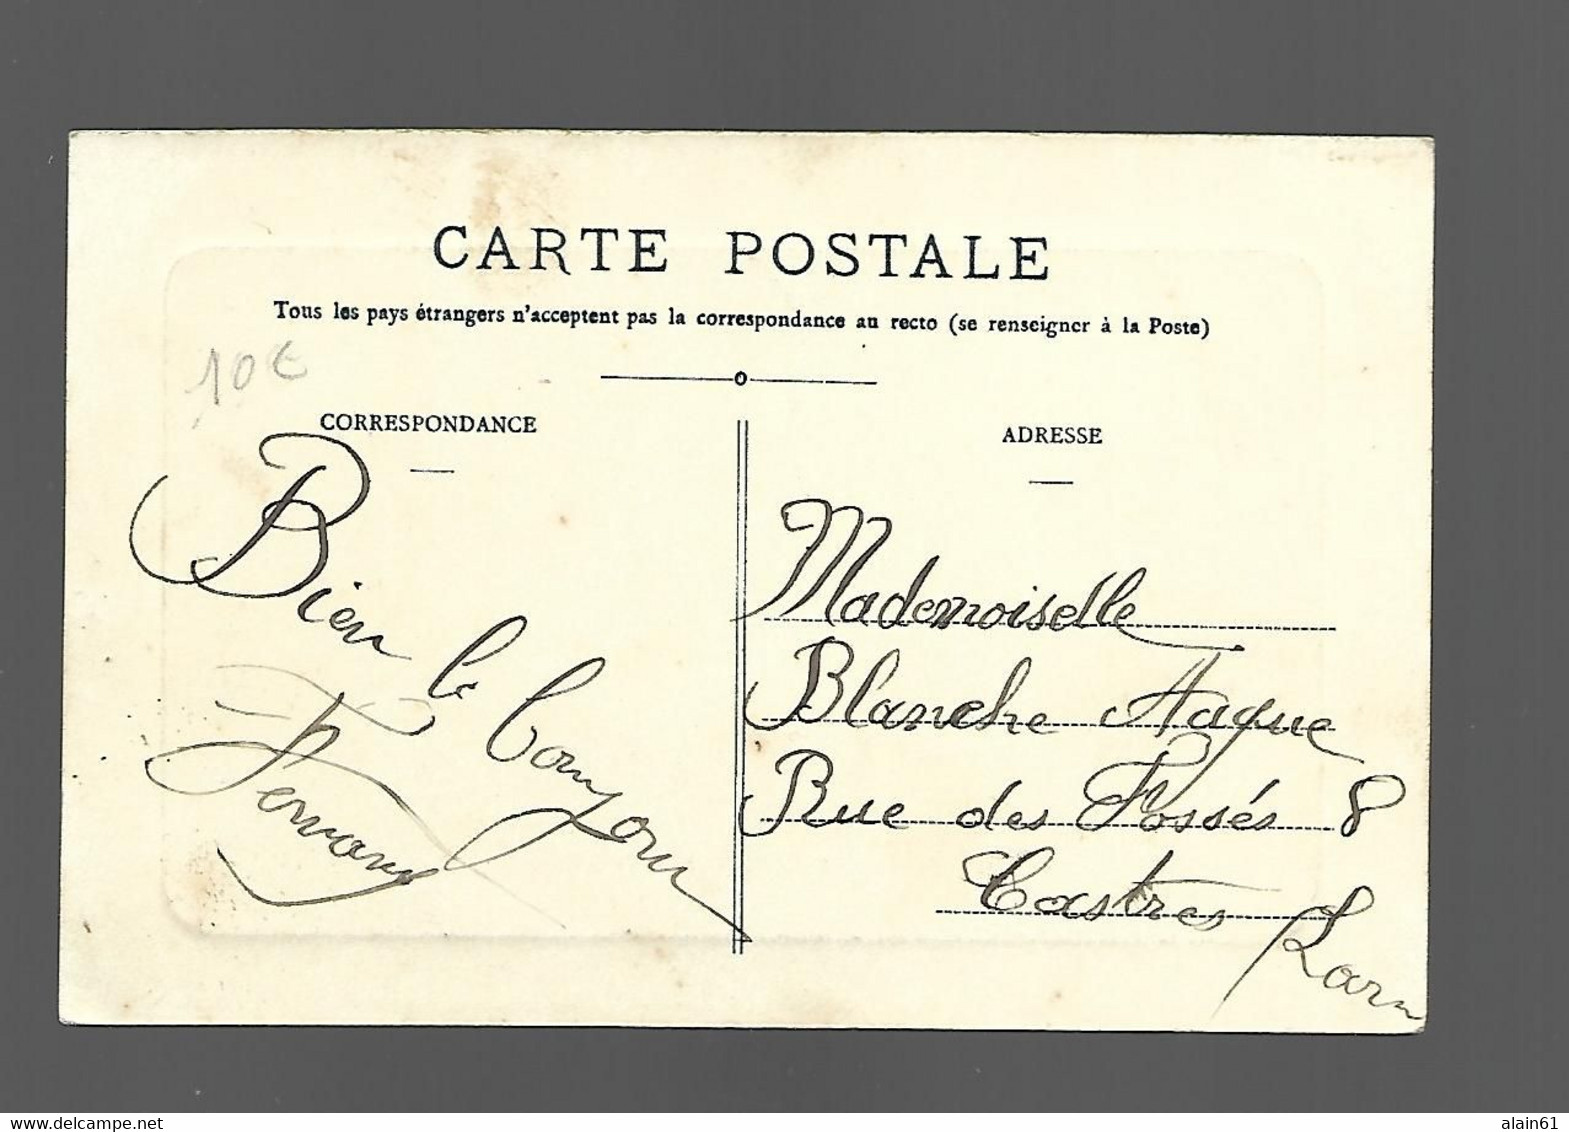 CARTE POSTALE
Tous les pays étrangers n'acceptent pas la correspondance au recto (se renseigner à la Poste)
10 €
CORRESPONDANCE
Bien le bonjour
Fernand
ADRESSE
Mademoiselle
Blanche Hague
Rue des Fossés 8
Castres
Tarn
alain61